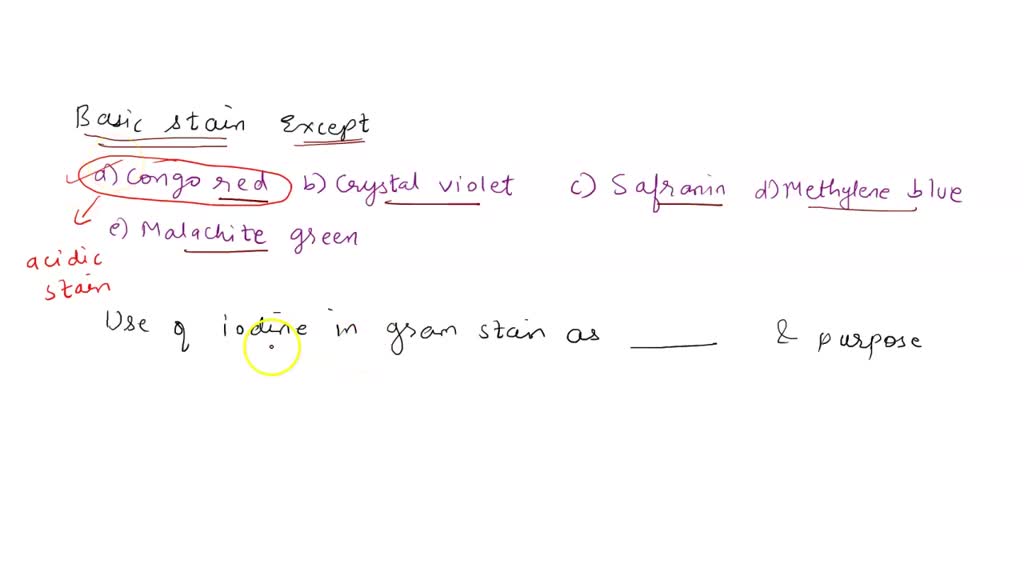 Basic stain Except
a) Congo red b) Crystal violet c) Safranin d) Methylene blue
e) Malachite green
acidic
stain
Use of iodine in gram stain as ____ & purpose